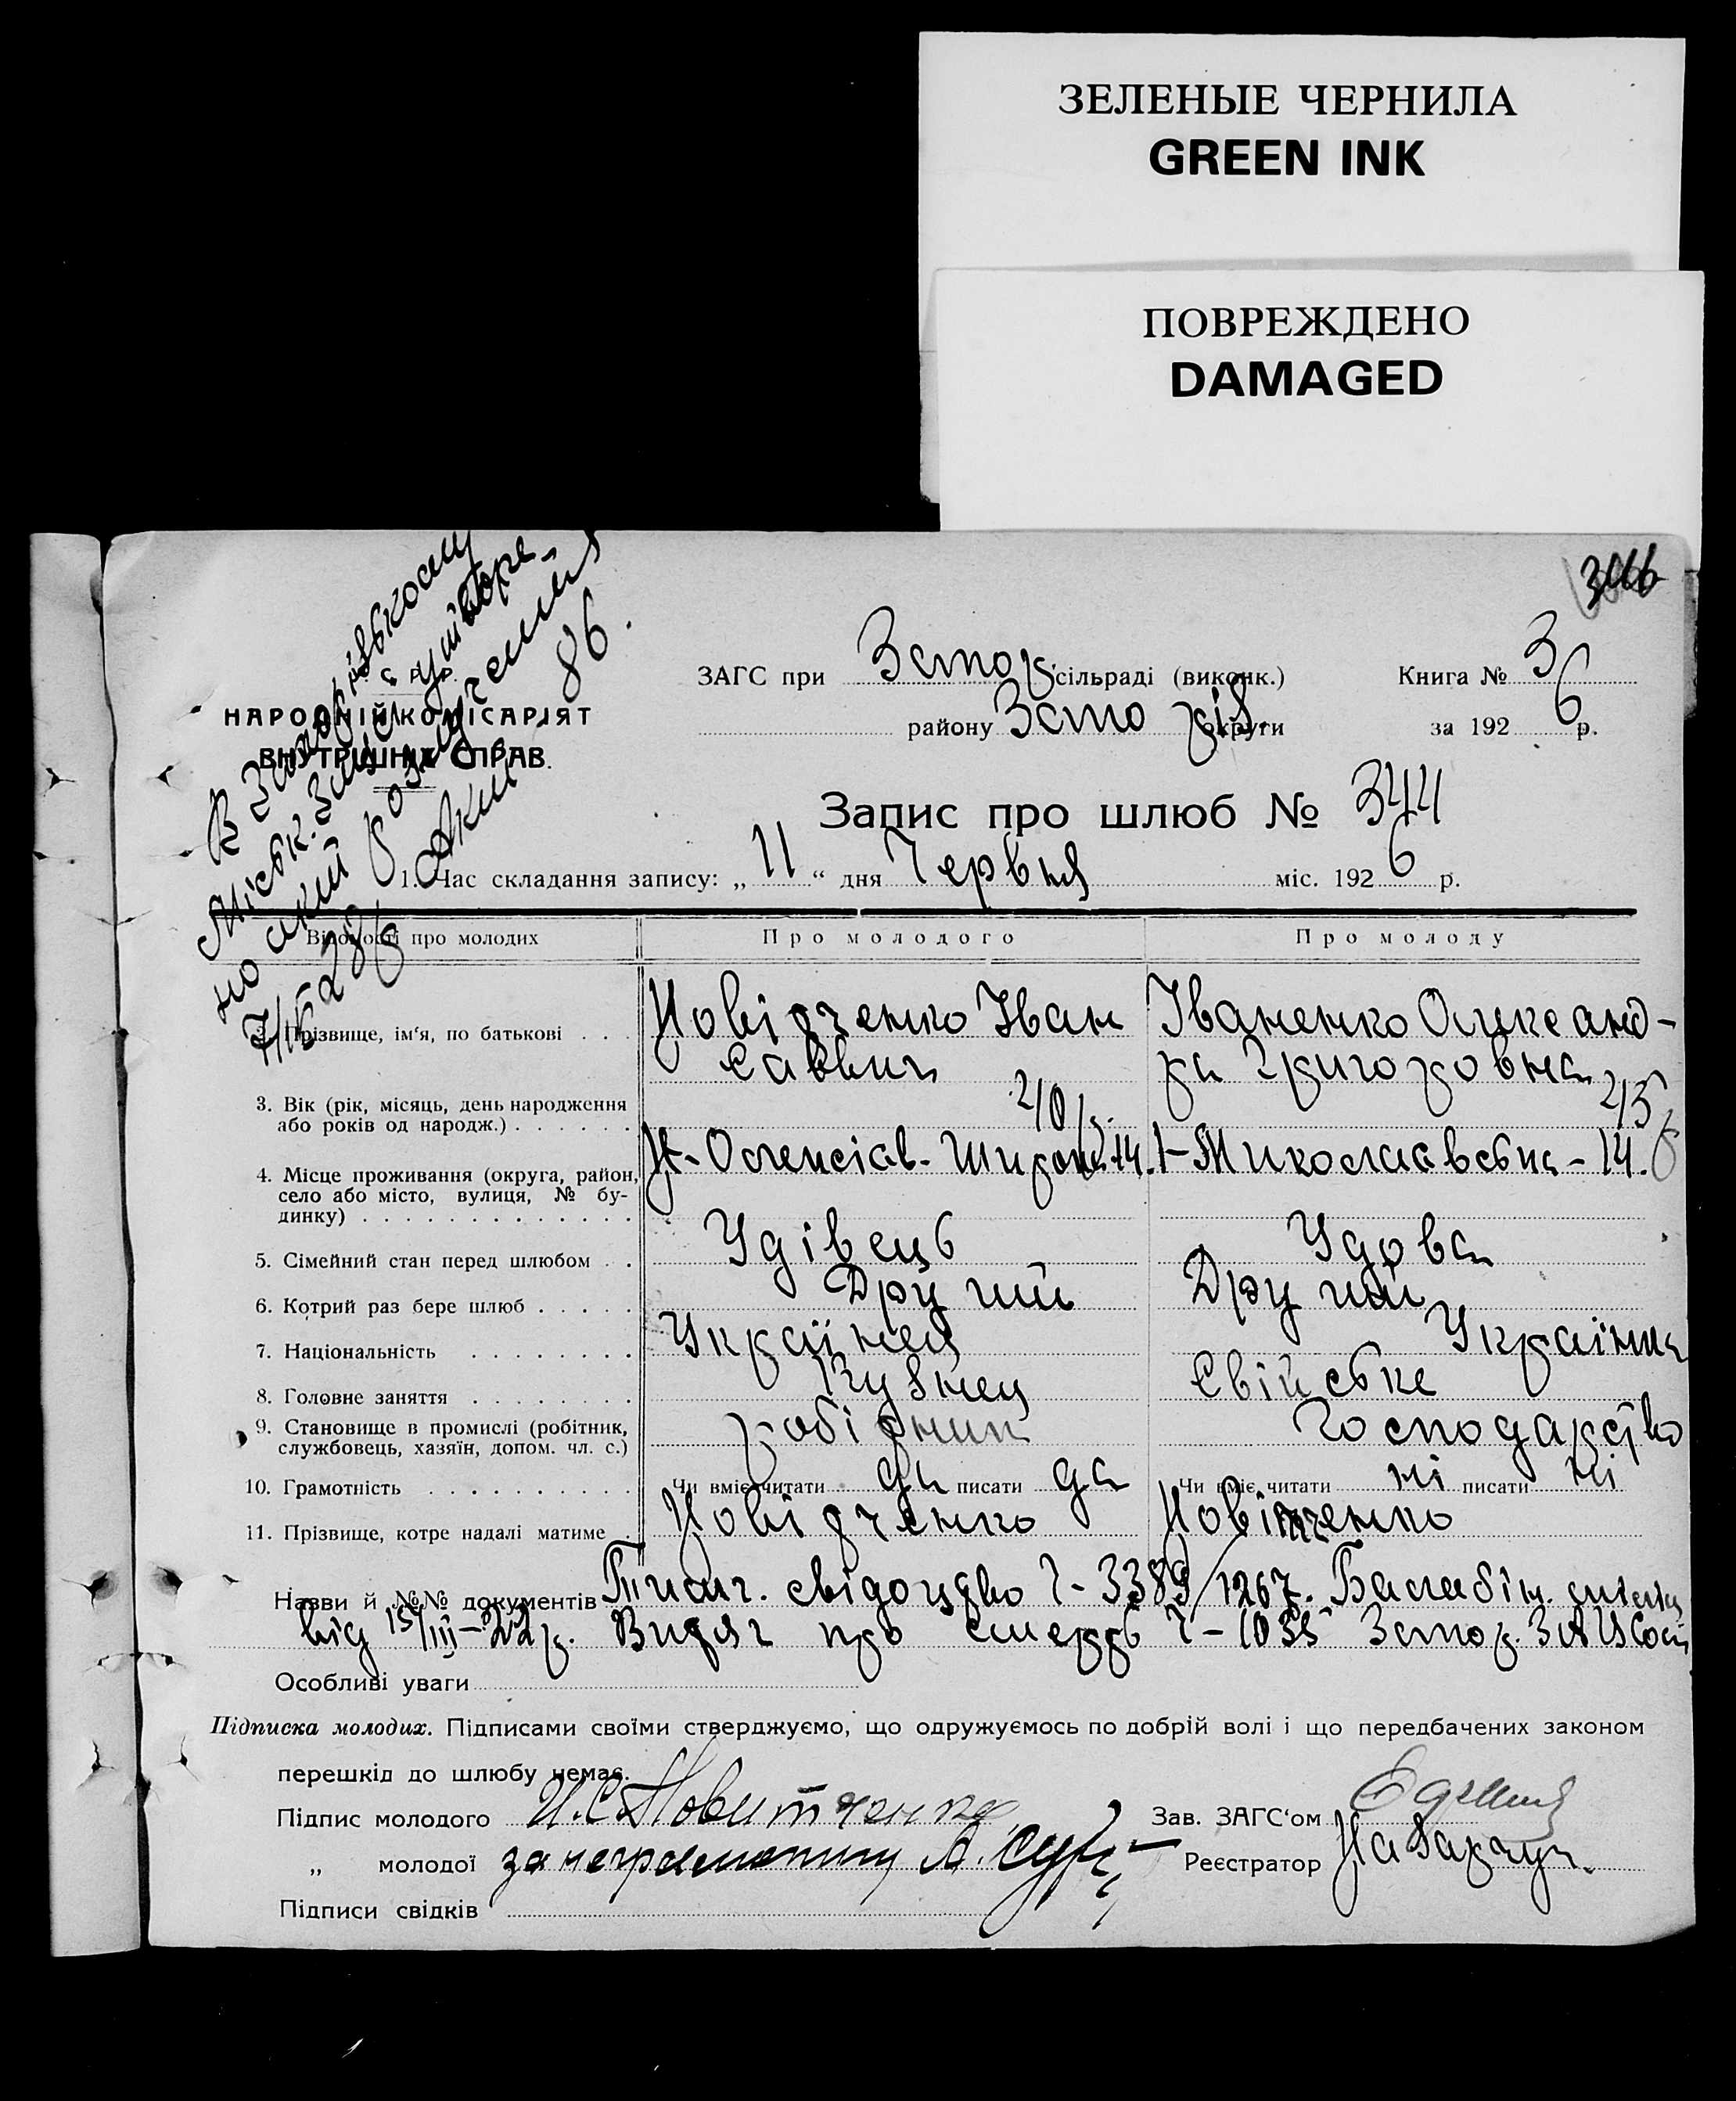 ЗЕЛЕНЫЕ ЧЕРНИЛА
GREEN INK
ПОВРЕЖДЕНО
DAMAGED
НАРОДНІЙ КОМІСАРІЯТ
ВНУТРІШНІХ СПРАВ.
ЗАГС при Запор. сільраді (виконк.) Книга № 3
району Запо різ. округи за 1926 р.
Запис про шлюб № 344
1. Час складання запису: „11“ дня Червня міс. 1926 р.
Відомості про молодих Про молодого Про молоду
2. Прізвище, ім‘я, по батькові . . . Новідченко Іван Іваненко Олександ-
Саввич ра Григоровна
3. Вік (рік, місяць, день народження 40 р. 45
або років од народж.) . . . . . .
4. Місце проживання (округа, район, 14. Миколаівська - 14.
село або місто, вулиця, № бу-
динку) . . . . . . . . . . . . .
5. Сімейний стан перед шлюбом . . Удівець Удова
6. Котрий раз бере шлюб . . . . . Другий Другий
7. Національність . . . . . . . . Українец Українка
8. Головне заняття . . . . . . . . Кузнец Свійське
9. Становище в промислі (робітник, робітник Господарство
службовець, хазяїн, допом. чл. с.)
10. Грамотність . . . . . . . . . . Чи вміє читати да писати да Чи вміє читати ні писати ні
11. Прізвище, котре надалі матиме . Новідченко Новітченко
Назви й №№ документів свідоцтво Ч-3389/1267. Балабін.
від 15/III-22 р. Витяг про смерть Ч-1035 Запор. ЗАГСом
Особливі уваги
Підписка молодих. Підписами своїми стверджуємо, що одружуємось по добрій волі і що передбачених законом
перешкід до шлюбу немає.
Підпис молодого И.С. Новитченко Зав. ЗАГС‘ом
„ молодої за неграмотну А. Реєстратор
Підписи свідків